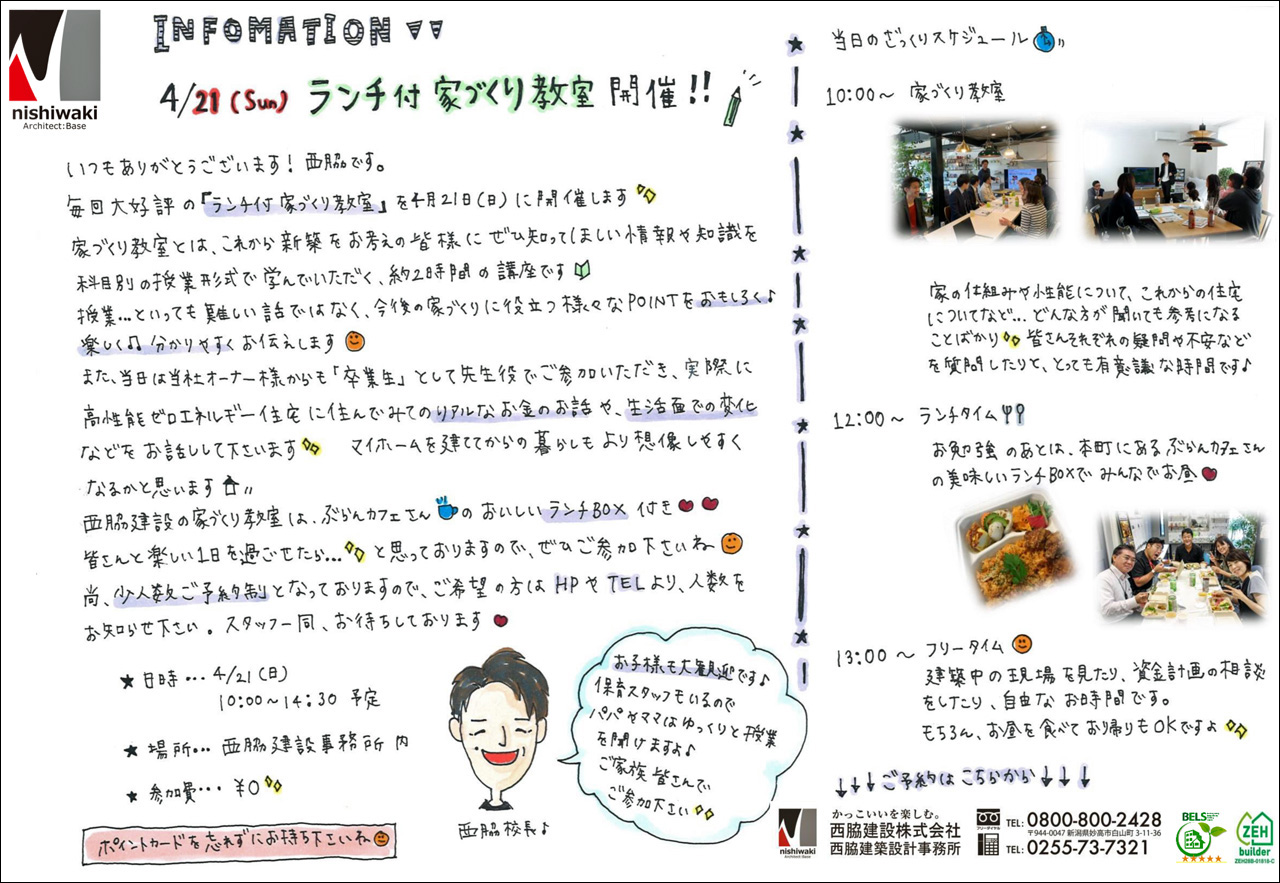 nishiwaki
Architect:Base
INFOMATION
4/21(Sun) ランチ付 家づくり教室 開催!!
いつもありがとうございます! 西脇です。
毎回大好評の「ランチ付 家づくり教室」を4月21日(日)に開催します
家づくり教室とは、これから新築をお考えの皆様に ぜひ知ってほしい情報や知識を
科目別の授業形式で学んでいただく、約2時間の講座です
授業…といっても難しい話ではなく、今後の家づくりに役立つ様々なPOINTをおもしろく♪
楽しく♫ 分かりやすくお伝えします
また、当日は当社オーナー様からも「卒業生」として先生役でご参加いただき、実際に
高性能ゼロエネルギー住宅に住んでみてのリアルなお金のお話や、生活面での変化
などをお話しして下さいます マイホームを建ててからの暮らしもより想像しやすく
なるかと思います
西脇建設の家づくり教室は、ぶらんカフェさんのおいしいランチBOX付き
皆さんと楽しい1日を過ごせたら… と思っておりますので、ぜひご参加下さいね
尚、少人数ご予約制となっておりますので、ご希望の方は HPや TELより、人数を
お知らせ下さい。スタッフ一同、お待ちしております
★ 日時… 4/21(日)
10:00~14:30 予定
★ 場所… 西脇建設事務所内
★ 参加費… ¥0
ポイントカードを忘れずにお持ち下さいね
西脇校長♪
お子様も大歓迎です♪
保育スタッフもいるので
パパやママはゆっくりと授業
を聞けますよ♪
ご家族皆さんで
ご参加下さい
当日のざっくりスケジュール
10:00~ 家づくり教室
家の仕組みや性能について、これからの住宅
についてなど… どんな方が聞いても参考になる
ことばかり 皆さんそれぞれの疑問や不安など
を質問したりと、とっても有意議な時間です♪
12:00~ ランチタイム
お勉強のあとは、本町にあるぶらんカフェさん
の美味しいランチBOXで みんなでお昼
13:00~ フリータイム
建築中の現場を見たり、資金計画の相談
をしたり、自由なお時間です。
もちろん、お昼を食べてお帰りもOKですよ
↓↓↓ご予約はこちらから↓↓↓
nishiwaki
Architect:Base
かっこいいを楽しむ。
西脇建設株式会社
西脇建築設計事務所
フリーダイヤル
TEL: 0800-800-2428
〒944-0047 新潟県妙高市白山町 3-11-36
TEL: 0255-73-7321
BELS
★★★★★
ZEH
builder
ZEH28B-01818-C